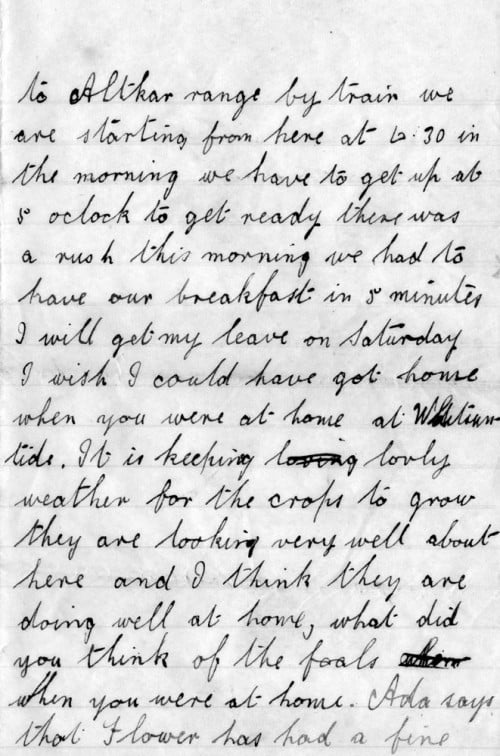 to Altkar range by train we
are starting from here at 6.30 in
the morning we have to get up at
5 oclock to get ready there was
a rush this morning we had to
have our breakfast in 5 minutes
I will get my leave on Saturday
I wish I could have got home
when you were at home at Whitsun-
tide. It is keeping lovly
weather for the crops to grow
they are looking very well about
here and I think they are
doing well at home, what did
you think of the foals
when you were at home. Ada says
that Flower has had a fine